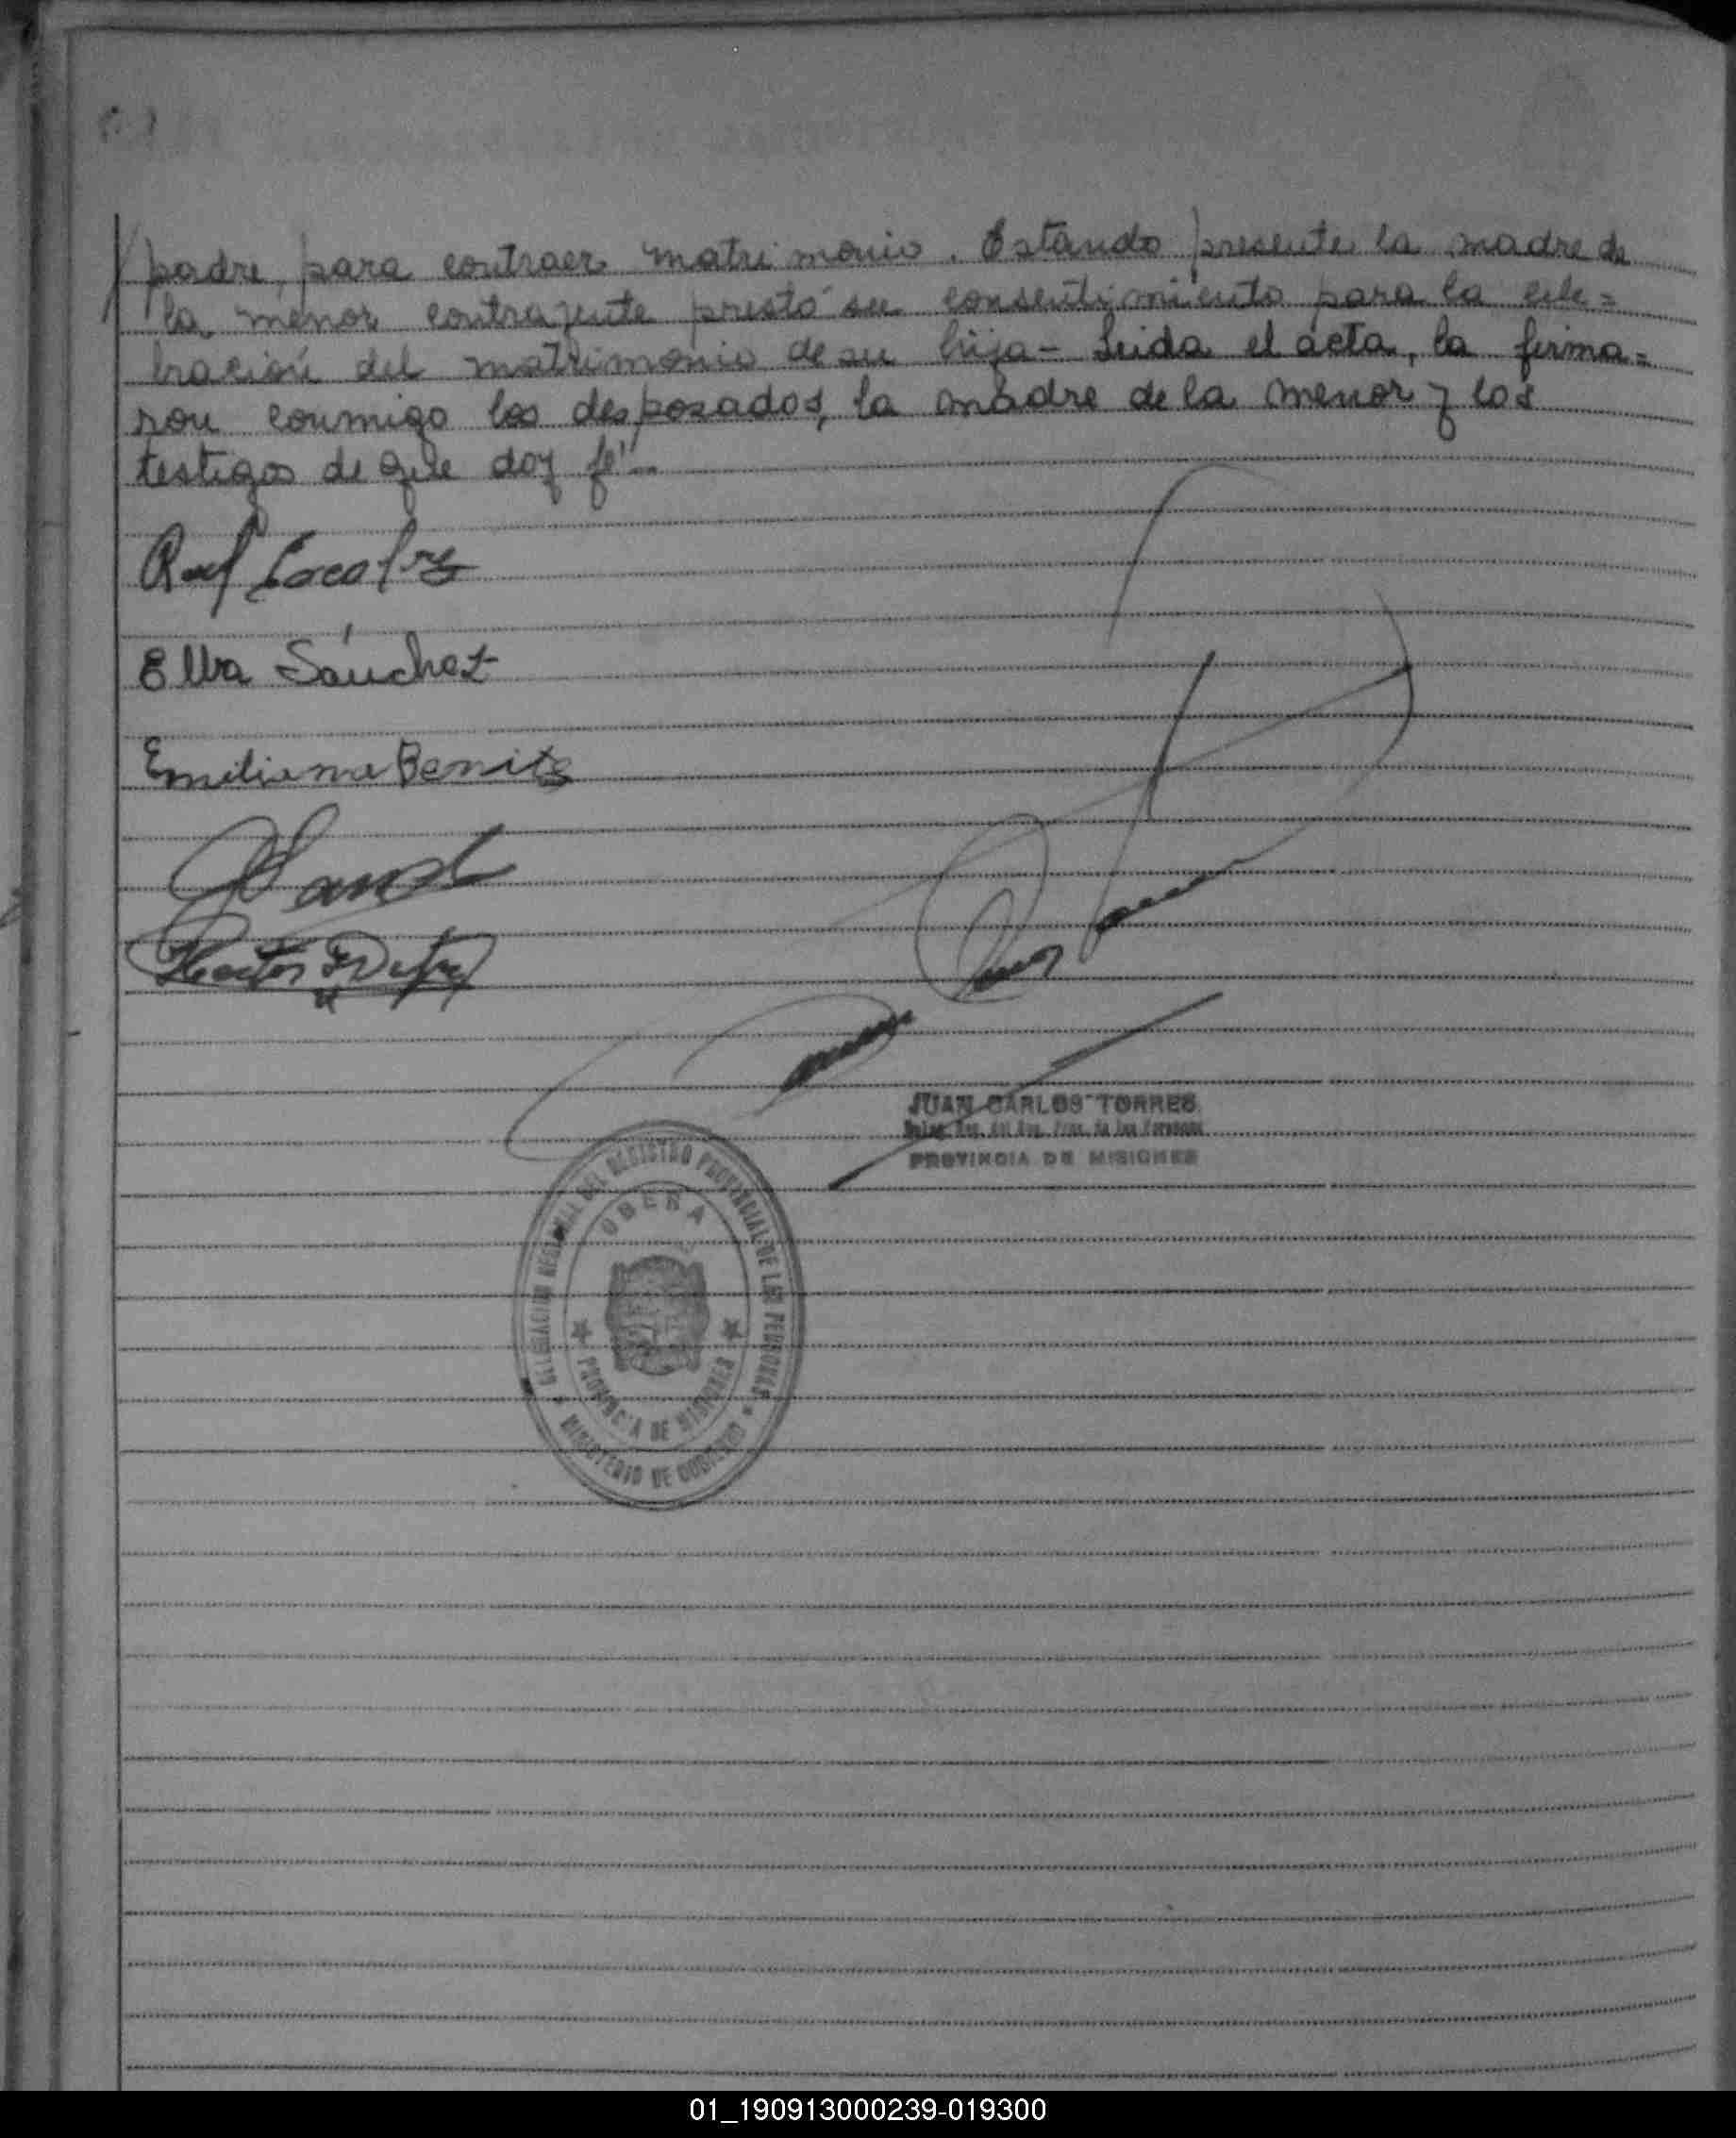 padre, para contraer matrimonio. Estando presente la madre de
la menor contrayente prestó su consentimiento para la cele=
bración del matrimonio de su hija - Leida el acta, la firma=
ron conmigo los desposados, la madre de la menor y los
testigos de que doy fé.-
Elba Sánchez
Emiliana Benitez
Hector
JUAN CARLOS TORRES
Deleg. Reg. del Reg. Prov. de las Personas
PROVINCIA DE MISIONES
DELEGACION REGIONAL DEL REGISTRO PROVINCIAL DE LAS PERSONAS
OBERA
PROVINCIA DE MISIONES
MINISTERIO DE GOBIERNO
01_190913000239-019300